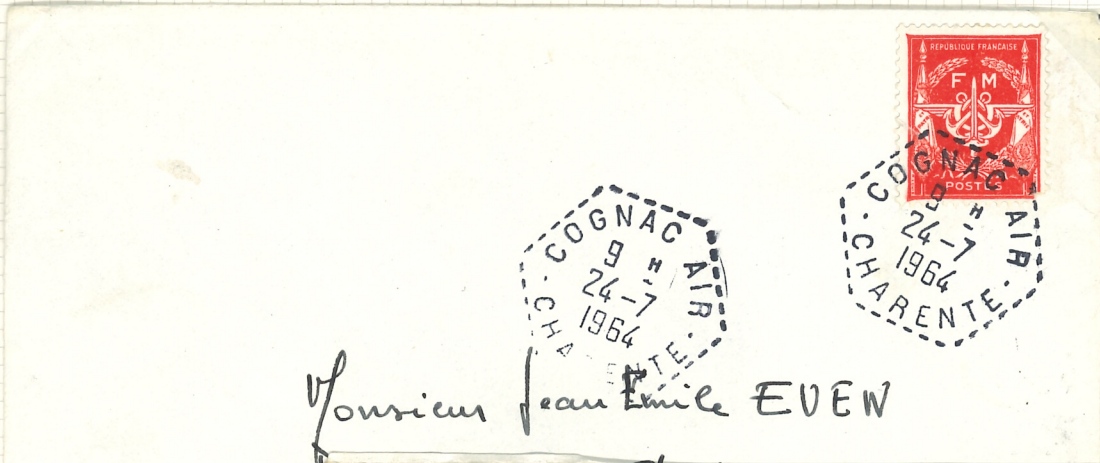 REPUBLIQUE FRANÇAISE
F M
POSTES
COGNAC AIR
9 H
24-7
1964
CHARENTE
COGNAC AIR
9 H
24-7
1964
CHARENTE
Monsieur Jean Emile EVEN